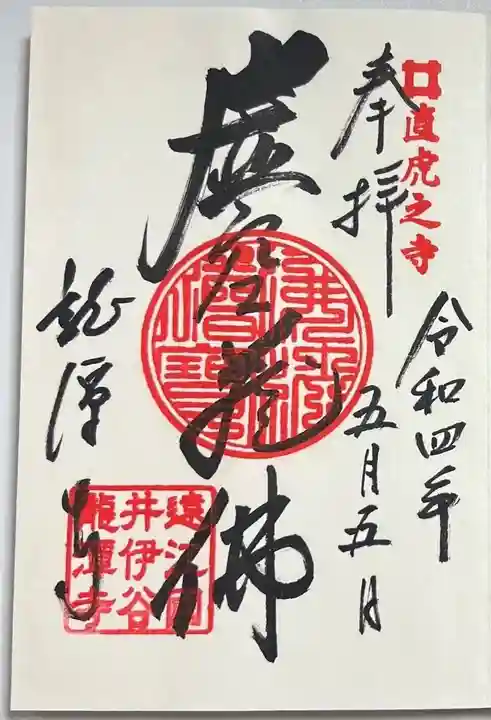 直虎之寺
奉拝
令和四年
五月五月
虚空蔵佛
龍潭寺
遠江國
井伊谷
龍潭寺